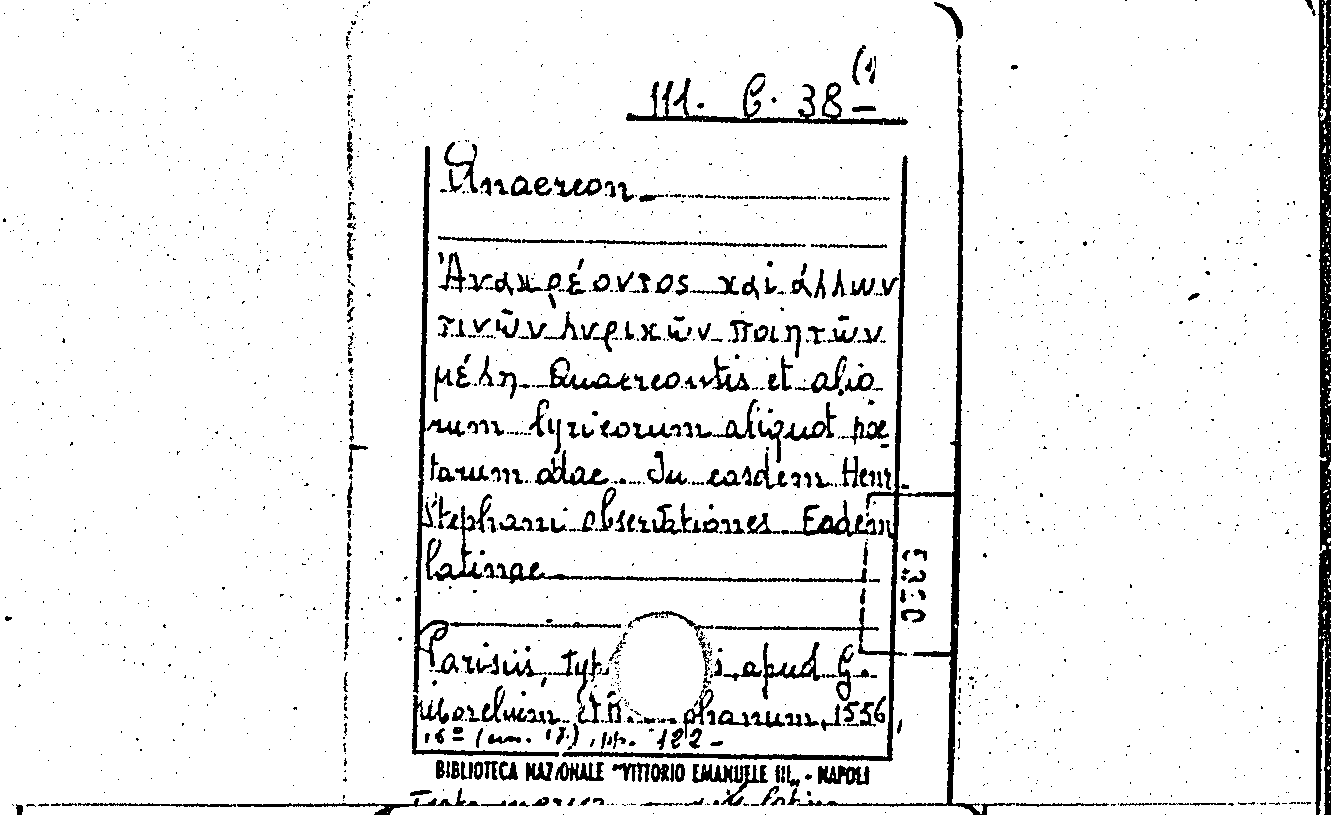 III. C. 38 (1)
Anacreon
Ἀνακρέοντος καὶ ἄλλων
τινῶν λυρικῶν ποιητῶν
μέλη. Anacreontis et alio
rum lyricorum aliquot poe
tarum odae. In easdem Henr.
Stephani observationes. Eadem
latinae
Parisiis, typ i, apud G.
Morelium, et phanum, 1556,
16º (cm. 17), pp. 122 -
BIBLIOTECA NAZIONALE "VITTORIO EMANUELE III" - NAPOLI